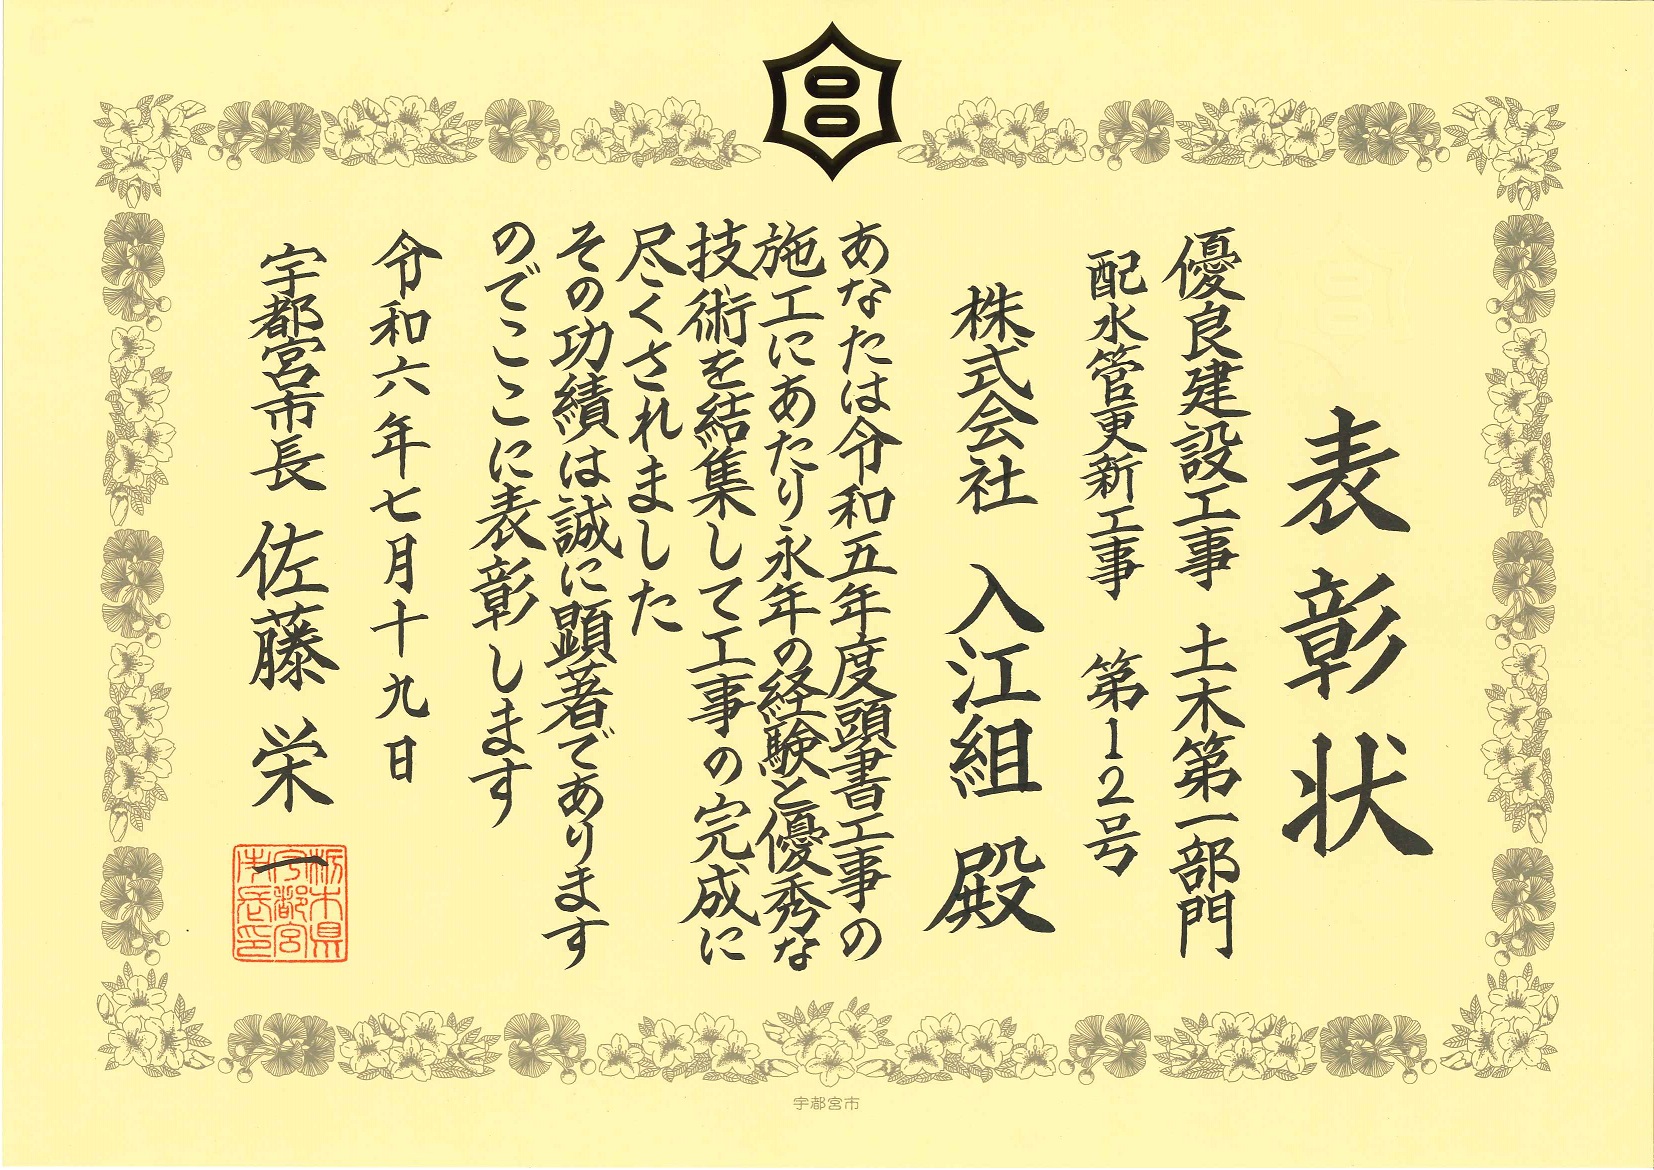 表彰状
優良建設工事　土木第一部門
配水管更新工事　第12号
株式会社　入江組　殿
あなたは令和五年度頭書工事の
施工にあたり永年の経験と優秀な
技術を結集して工事の完成に
尽くされました
その功績は誠に顕著であります
のでここに表彰します
令和六年七月十九日
宇都宮市長　佐藤　栄一
栃木県
宇都宮
市長印
宇都宮市